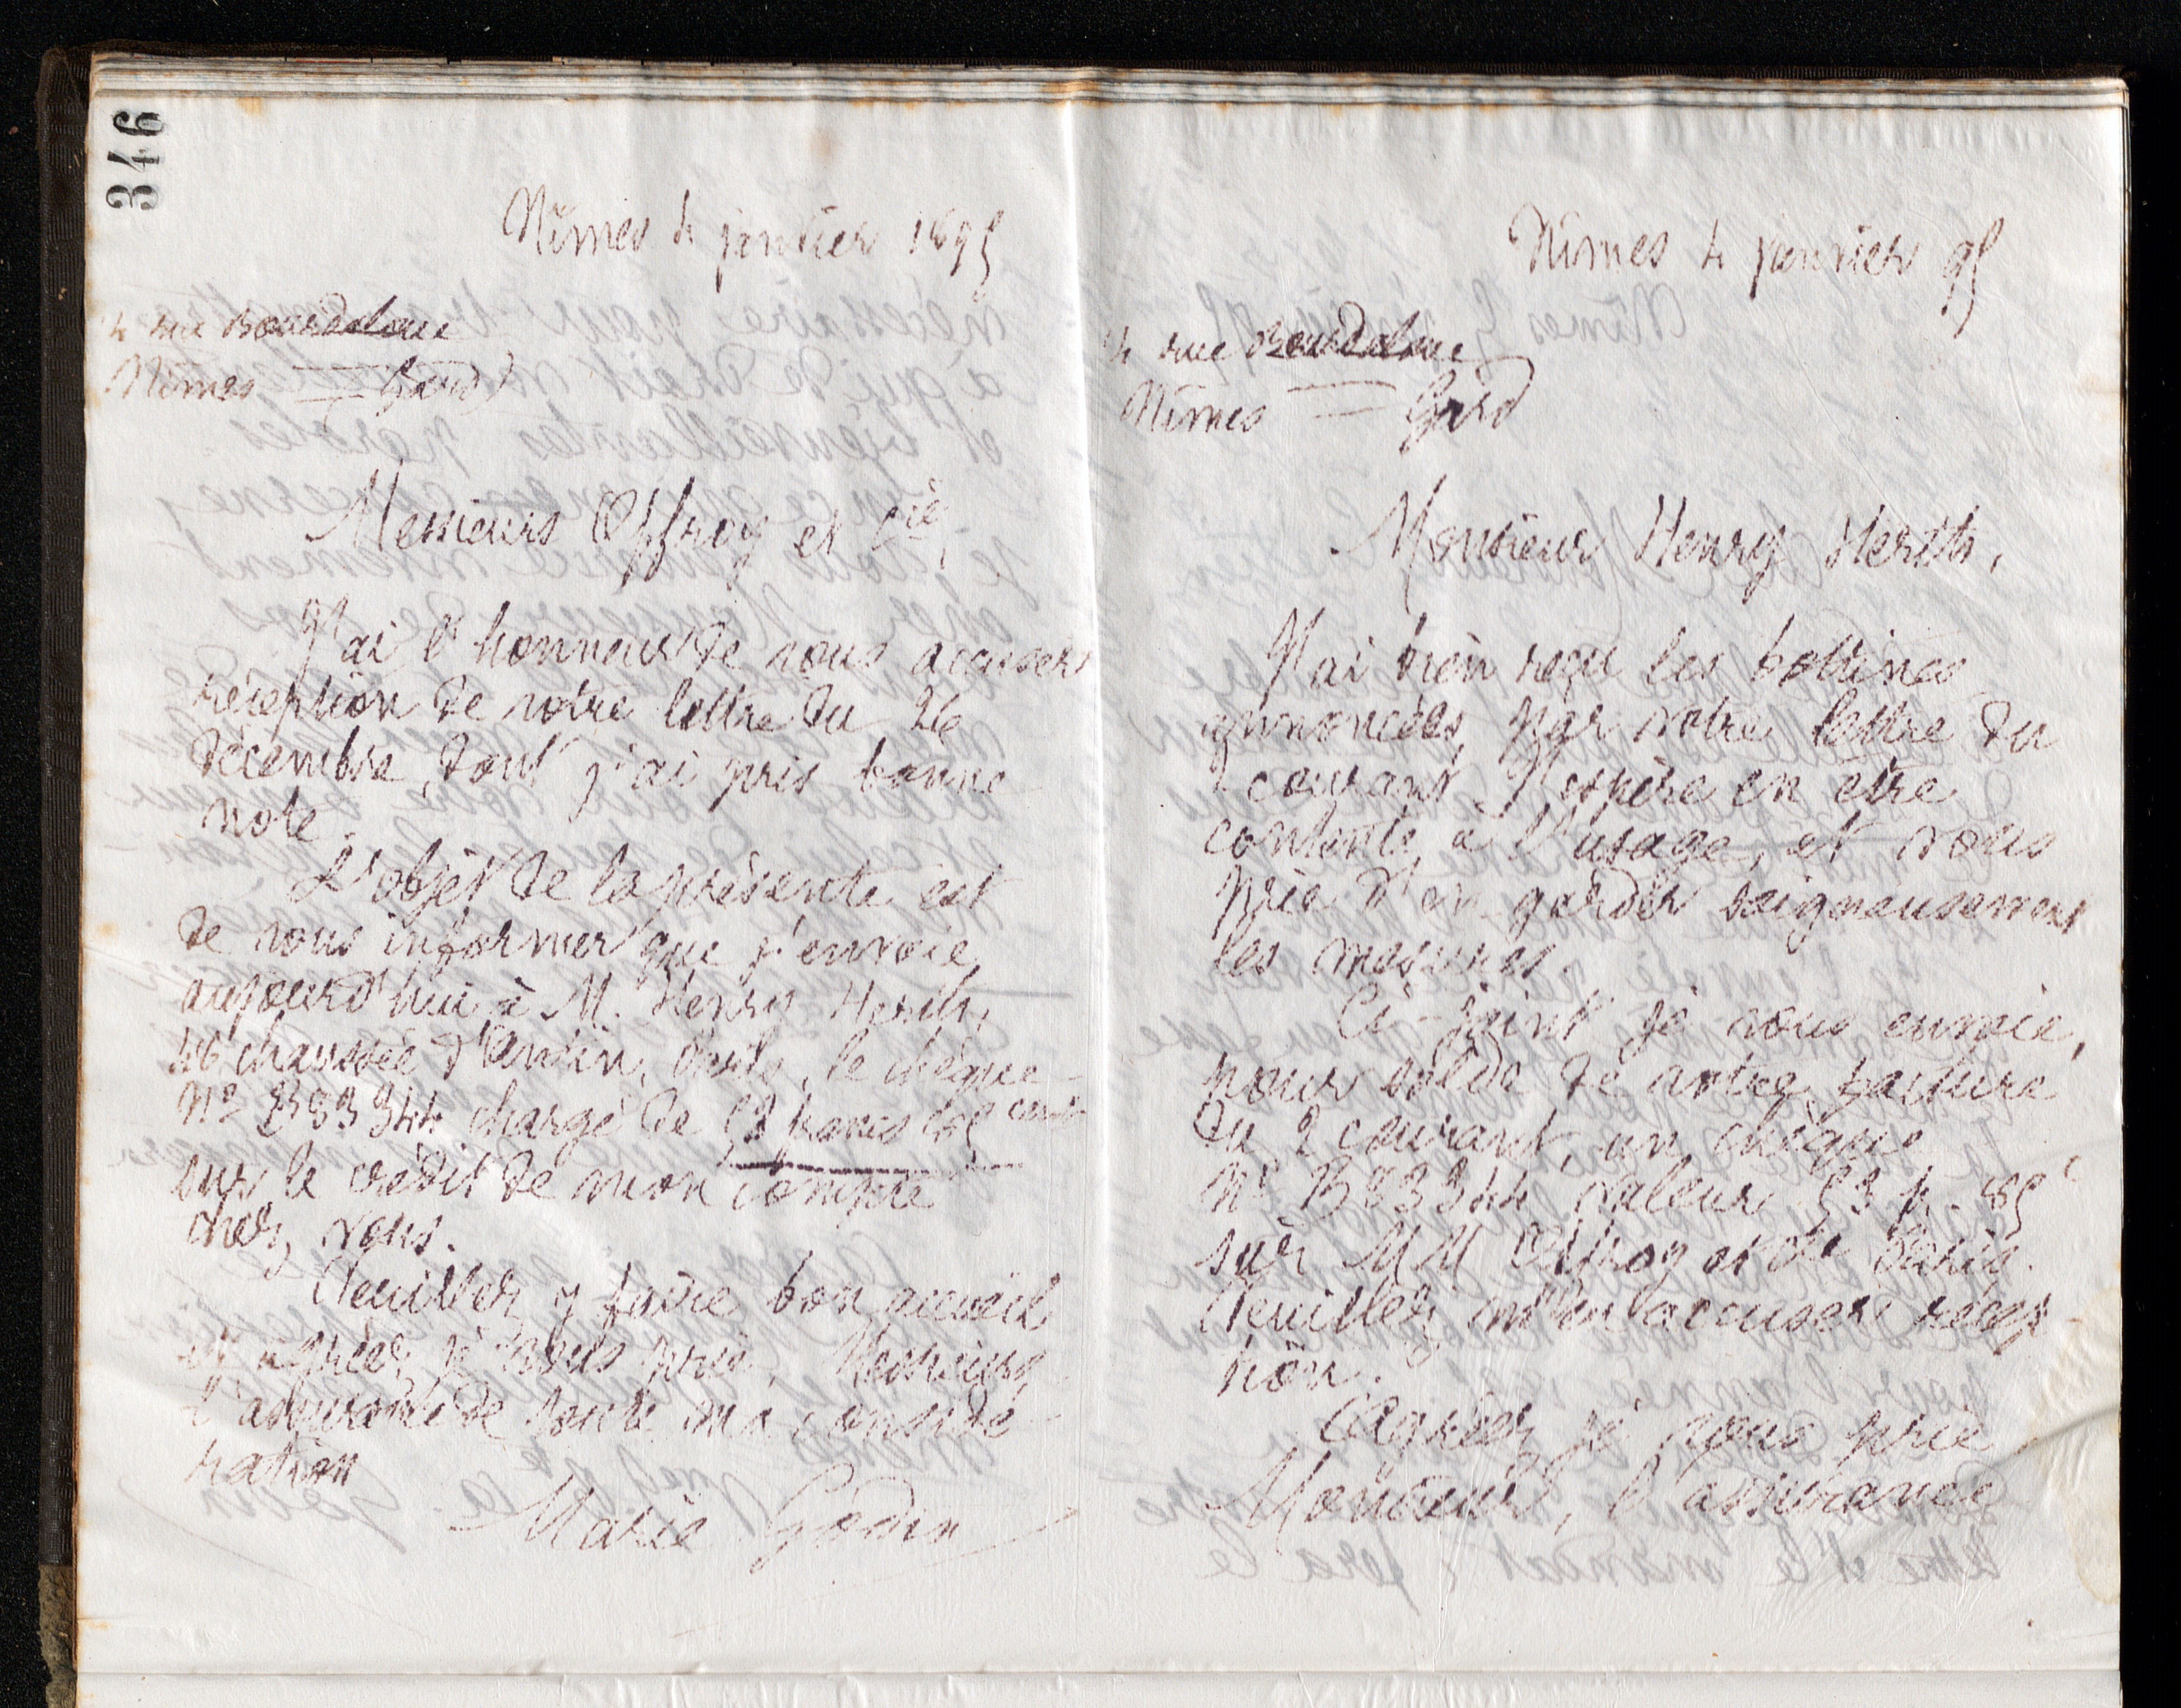 346
Nîmes 4 janvier 1895
4 rue Bourdaloue
Nîmes — (Gard)
Messieurs Offroy et Cie,
J'ai l'honneur de vous accuser
réception de votre lettre du 26
décembre, dont j'ai pris bonne
note.
L'objet de la présente est
de vous informer que j'envoie
aujourd'hui à M. Henry Herith,
46 chaussée d'Antin, Paris, le chèque
No 333344 chargé de francs 85 cent
sur le crédit de mon compte
chez vous.
Veuillez y faire bon accueil
et agréer, je vous prie, Messieurs,
l'assurance de toute ma considé
ration
Marie Godin
Nîmes 4 janvier 95
4 rue Bourdaloue
Nîmes — Gard
Monsieur Henry Herith,
J'ai bien reçu les bottines
annoncées par votre lettre du
2 courant. J'espère en être
contente à l'usage, et vous
prie d'en garder soigneusement
les mesures.
Ci-joint je vous envoie,
pour solde de votre facture
du 2 courant, un chèque
No B 333344 valeur 53 f. 85 c
sur MM Offroy et Cie Paris.
Veuillez m'en accuser récep
tion.
Agréez, je vous prie
Monsieur, l'assurance